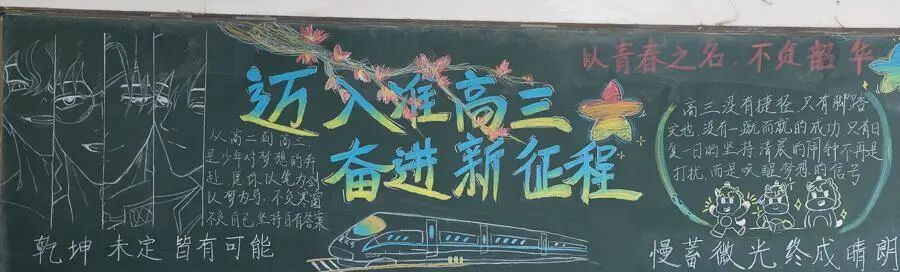 迈入准高三
奋进新征程
以青春之名.不负韶华
从高二到高三
是少年对梦想的奔
赴
以梦为马.不负寒窗
不负自己.坚持自有答案
乾坤未定皆有可能
高三没有捷径,只有脚踏
实地.没有一蹴而就的成功.只有日
复一日的坚持.清晨的闹钟不再是
打扰.而是唤醒梦想的信号
慢蓄微光终成晴朗